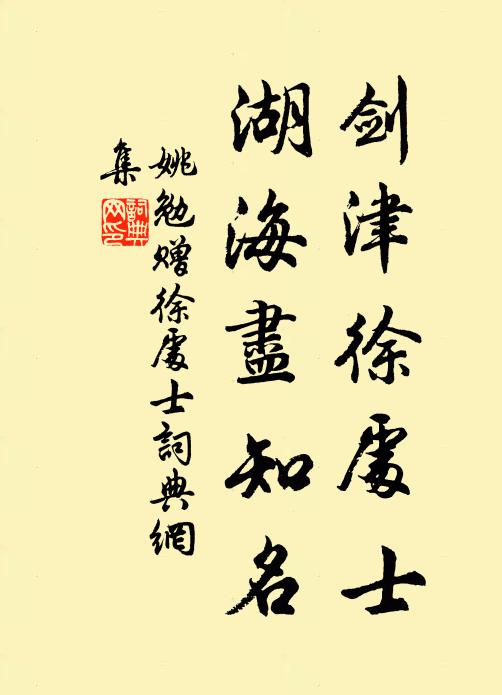 劍津徐處士
湖海盡知名
姚勉贈徐處士詞典網
集
詞典
網印